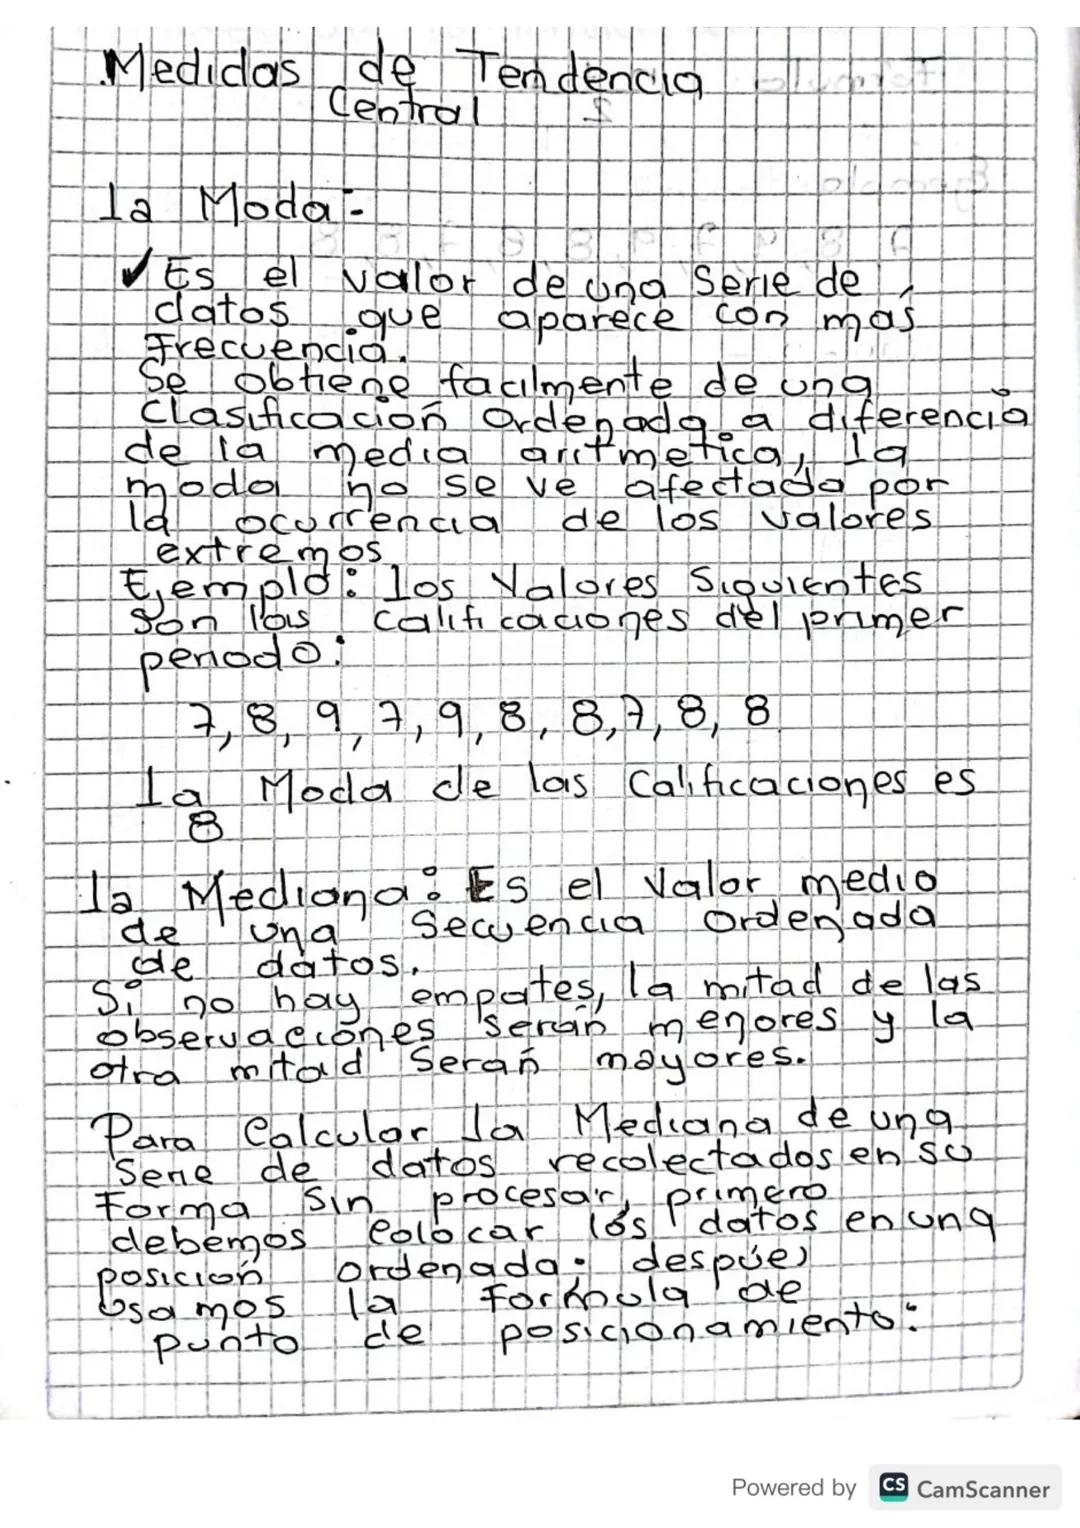 Medidas de Tendencia
Central
La Moda:
✓ Es el valor de una Serie de
datos que aparece con más
Frecuencia.
Se obtiene facilmente de una
Clasificación Ordenada a diferencia
de la media aritmetica, la
moda no se ve afectada por
la ocurrencia de los valores
extremos
Ejemplo: los Valores Siguientes
son las calificaciones del primer
periodo:
7, 8, 9, 7, 9, 8, 8, 7, 8, 8
La Moda de las Calificaciones es
8
La Mediana: Es el Valor medio
de una Secuencia Ordenada
de datos.
Si no hay empates, la mitad de las
observaciones serán menores y la
otra mitad Serán mayores.
Para Calcular la Mediana de una
Serie de datos recolectados en su
Forma Sin procesar, primero
debemos Colocar los datos en una
posición Ordenada. despúes
Usamos la Formula de
punto de posicionamiento:
Powered by CS CamScanner